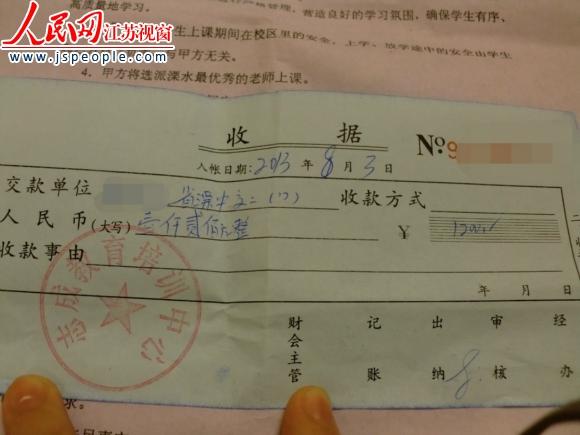 高质量地学习。
营造良好的学习氛围，确保学生有序、
人民网 江苏视窗
www.jspeople.com
生上课期间在校区里的安全，上学、放学途中的安全由学生
与甲方无关。
4．甲方将选派溧水最优秀的老师上课。
收 据
No 9
入帐日期：2013 年 8 月 3 日
交款单位 收款方式
人民币（大写）壹仟贰佰元整 ￥
收款事由
年 月 日
财会主管 记账 出纳 审核 经办
志成教育培训中心